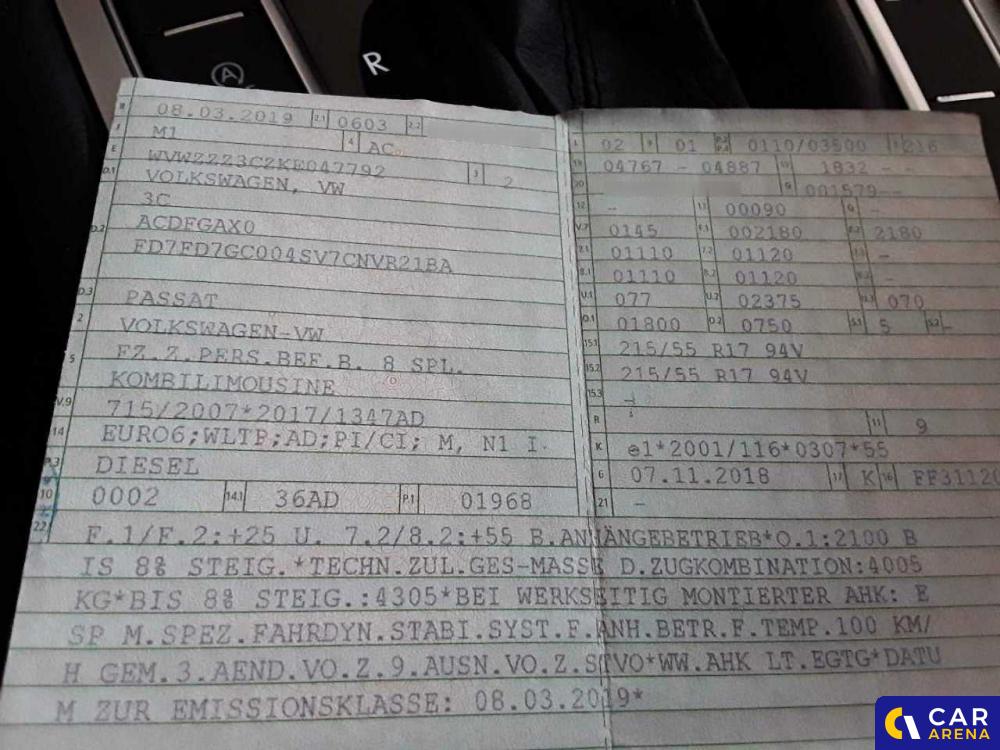 A
R
B 08.03.2019 2.1 0603 2.2
J M1 4 AC
E WVWZZZ3CZKE047792 3 2
D.1 VOLKSWAGEN, VW
3C
D.2 ACDFGAX0
FD7FD7GC004SV7CNVR21BA
D.3 PASSAT
2 VOLKSWAGEN-VW
5 FZ.Z.PERS.BEF.B. 8 SPL.
KOMBILIMOUSINE
V.9 715/2007*2017/1347AD
14 EURO6;WLTP;AD;PI/CI; M, N1 I
P.3 DIESEL
10 0002 14.1 36AD P.1 01968
L 02 9 01 P.2 P.4 0110/03500 T 216
18 04767 - 04887 19 1832 --
20 G 001579--
12 - 13 00090 Q -
V.7 0145 F.1 002180 F.2 2180
7.1 01110 7.2 01120 7.3 -
8.1 01110 8.2 01120 8.3 -
U.1 077 U.2 02375 U.3 070
O.1 01800 O.2 0750 S.1 5 S.2 -
15.1 215/55 R17 94V
15.2 215/55 R17 94V
15.3 -
R 11 9
K e1*2001/116*0307*55
6 07.11.2018 17 K 16 FF31120
21 -
22 F.1/F.2:+25 U. 7.2/8.2:+55 B.ANHÄNGEBETRIEB*O.1:2100 B
IS 8% STEIG.*TECHN.ZUL.GES-MASSE D.ZUGKOMBINATION:4005
KG*BIS 8% STEIG.:4305*BEI WERKSEITIG MONTIERTER AHK: E
SP M.SPEZ.FAHRDYN.STABI.SYST.F.ANH.BETR.F.TEMP.100 KM/
H GEM.3.AEND.VO.Z.9.AUSN.VO.Z.STVO*WW.AHK LT.EGTG*DATU
M ZUR EMISSIONSKLASSE: 08.03.2019*
CAR
ARENA